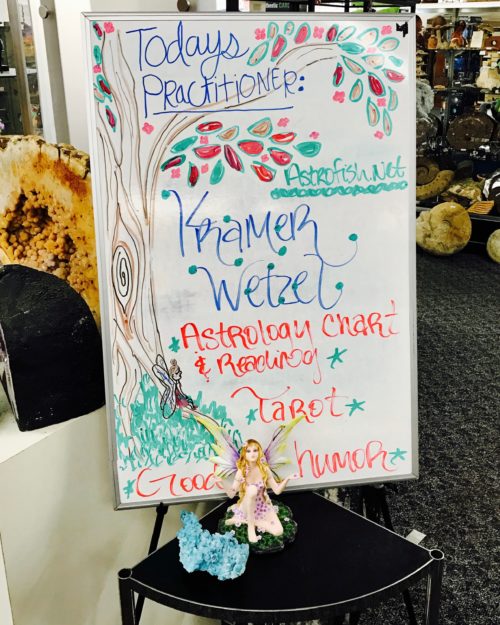 Todays
Practitioner:
Astrofish.Net
Kramer
Wetzel
*Astrology Chart
& Reading*
Tarot*
*Good humor*